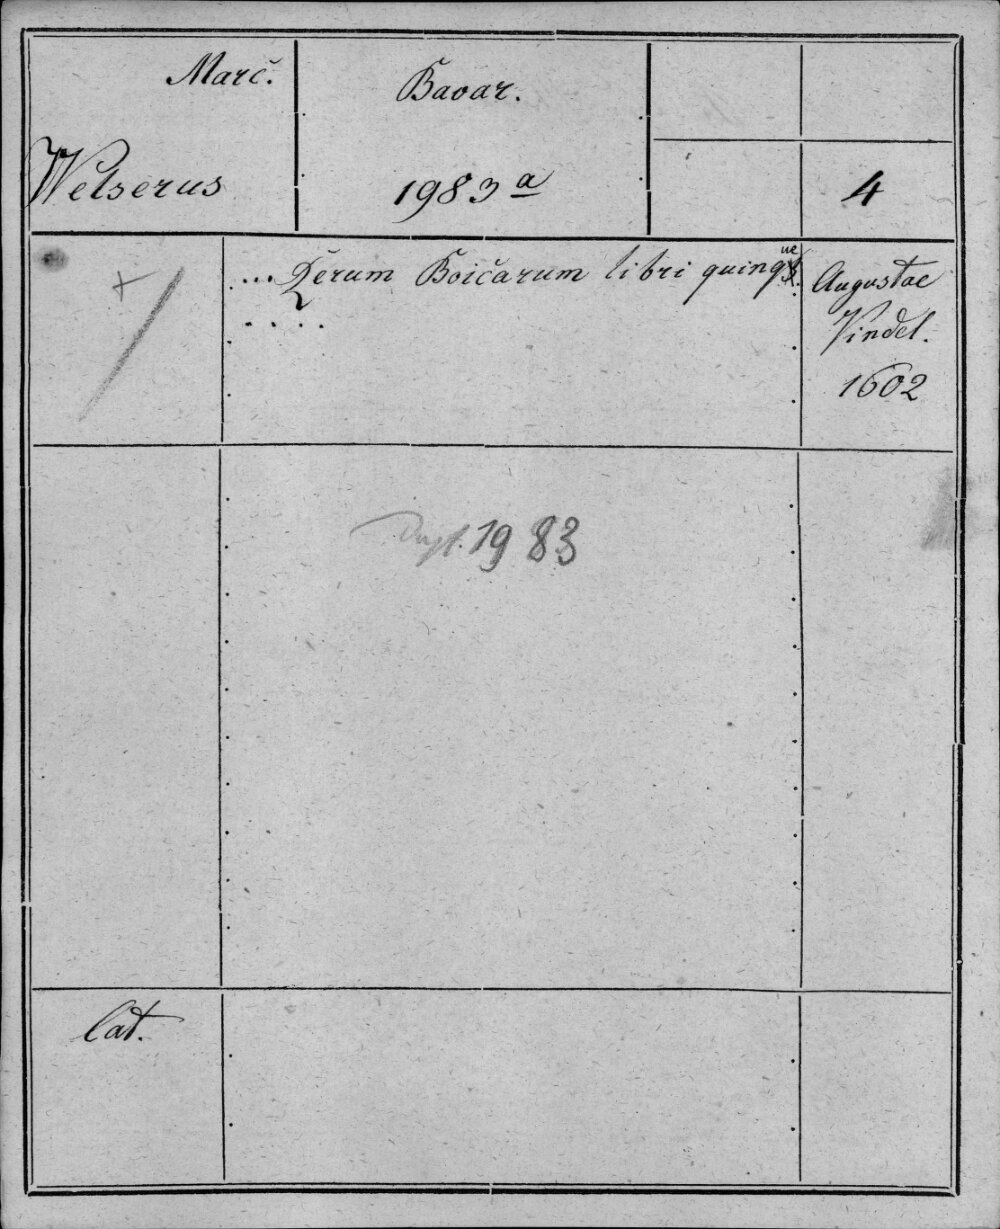 Marc.
Welserus
Bavar.
1983 a
4
... Rerum Boicarum libri quinque.
. . . .
Augustae
Vindel.
1602
+
Dupl. 1983
lat.